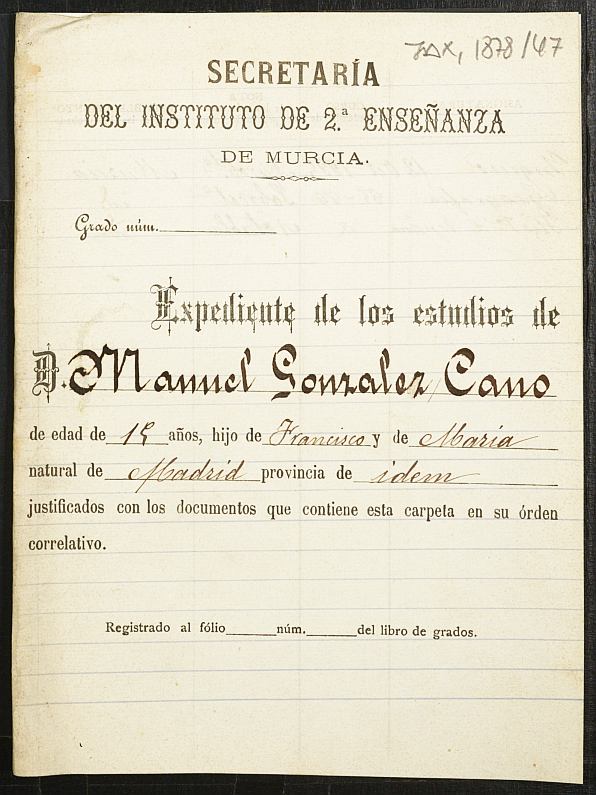 JAX, 1878/47
SECRETARÍA
DEL INSTITUTO DE 2.ª ENSEÑANZA
DE MURCIA.
Grado núm.
Expediente de los estudios de
D. Manuel Gonzalez Cano
de edad de 15 años, hijo de Francisco y de María
natural de Madrid provincia de idem
justificados con los documentos que contiene esta carpeta en su órden
correlativo.
Registrado al fólio núm. del libro de grados.